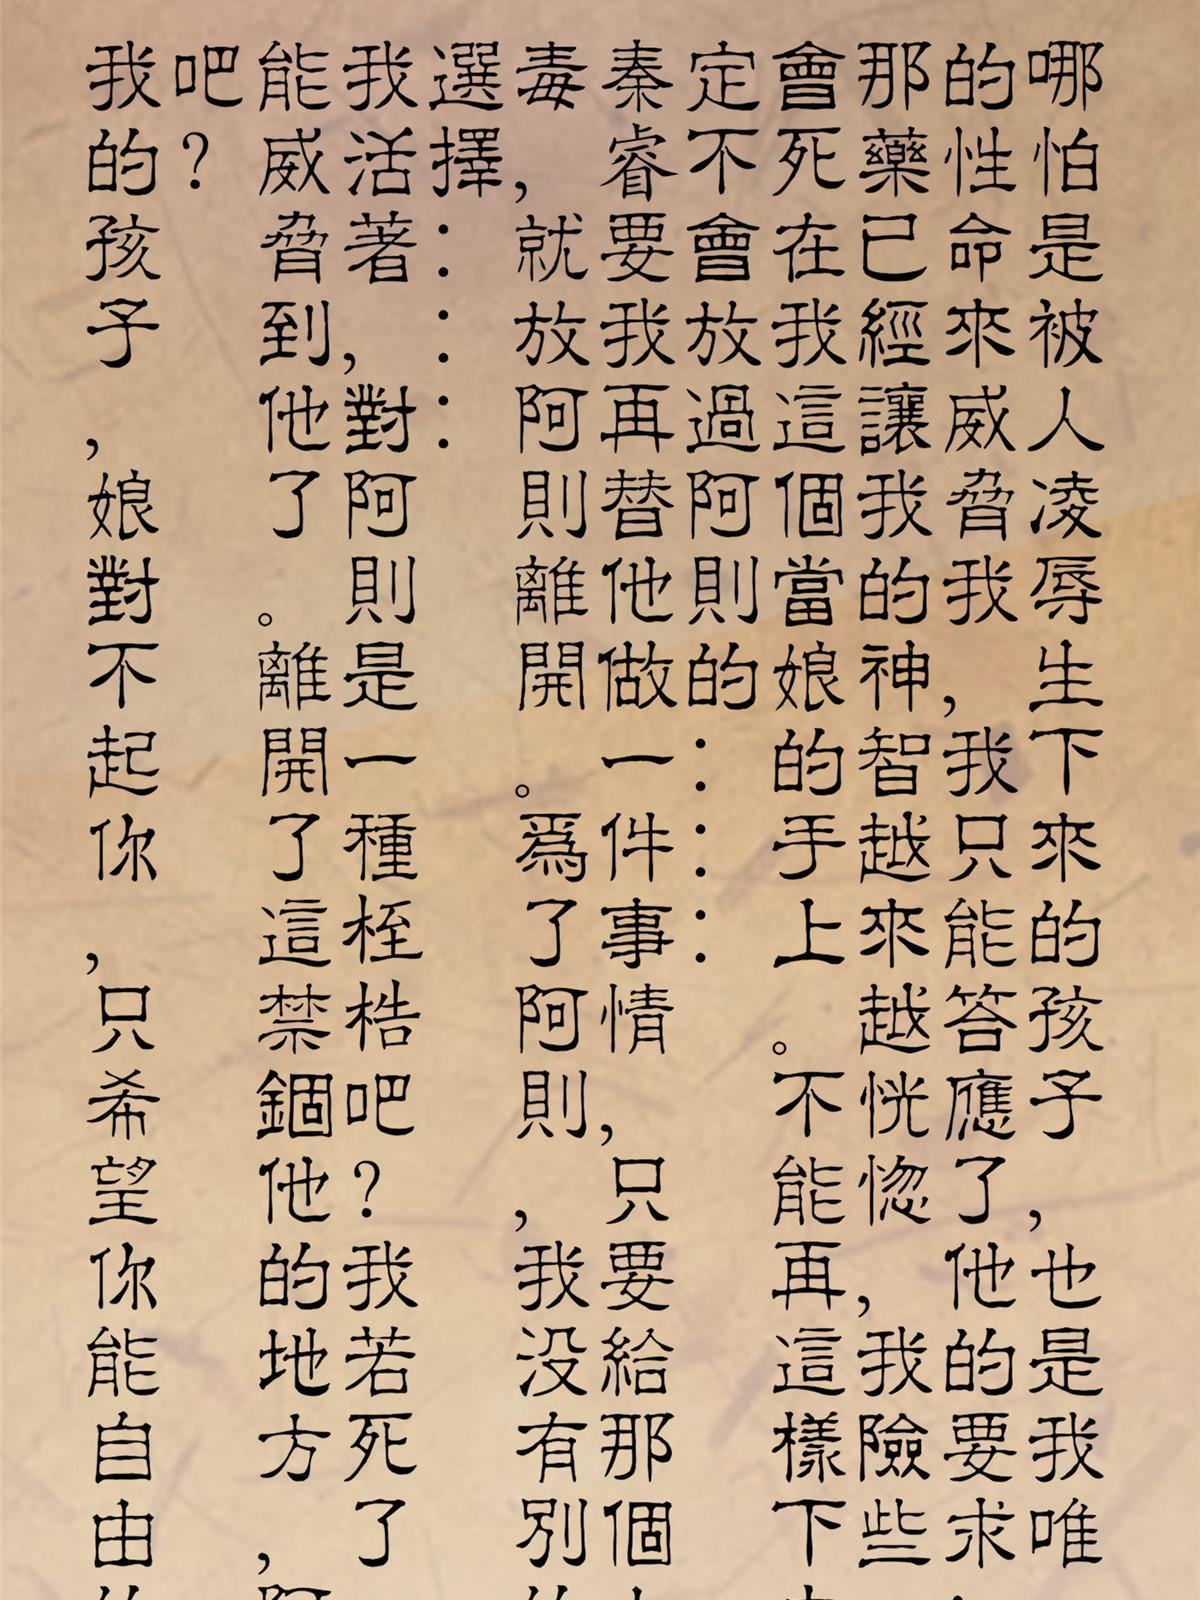 哪怕是被人凌辱生下來的孩子，也是我唯
的性命來威脅我，我只能答應了他的要求：
那藥已經讓我的神智越來越恍惚，我險些
會死在我這個當娘的手上。不能再這樣下
定不會放過阿則的：：：
秦睿要我再替他做一件事情，只要給那個
毒，就放阿則離開。爲了阿則，我没有別
選擇：：：
我活著，對阿則是一種桎梏吧？我若死了
能威脅到他了。離開了這禁錮他的地方，
吧？
我的孩子，娘對不起你，只希望你能自由